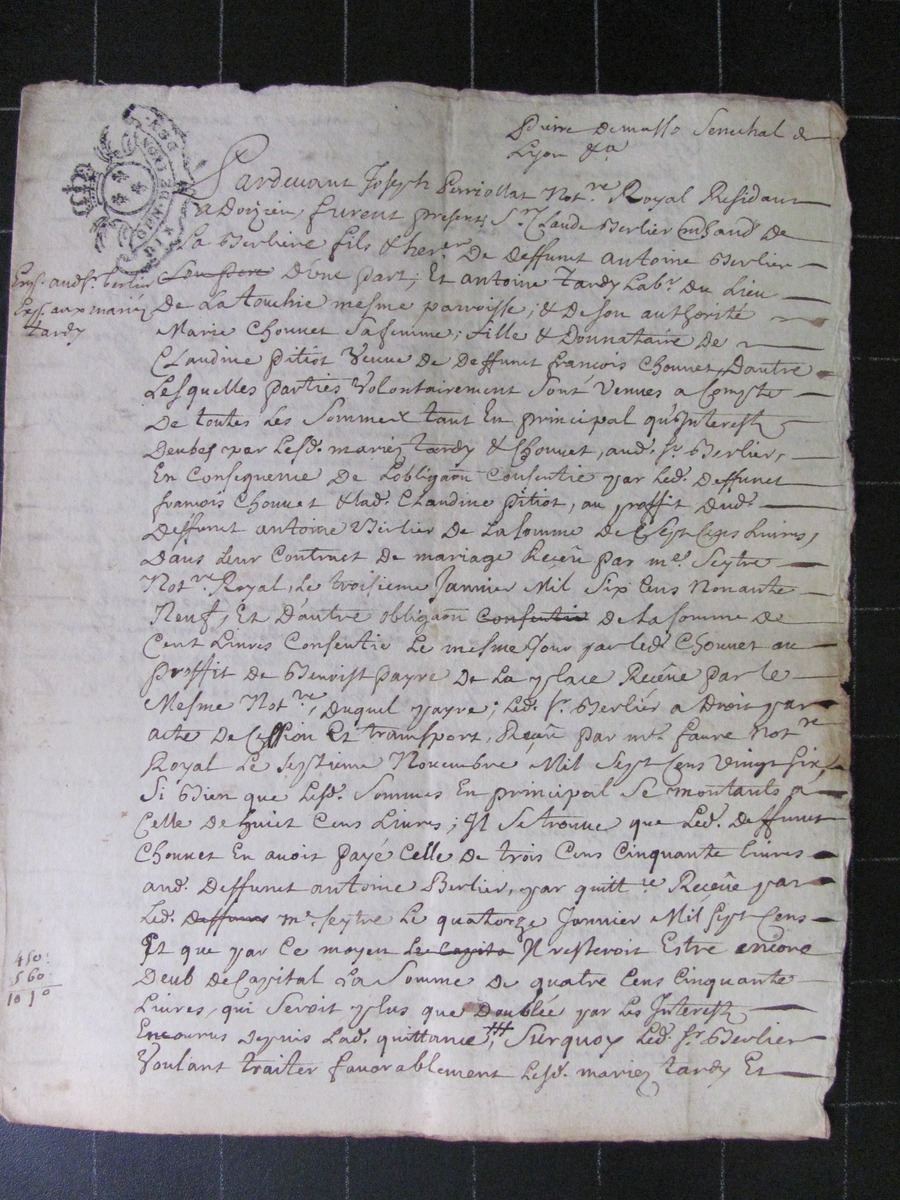 Pierre Demasso Senechal de
Lyon &a
Pardevant Joseph Perriollat Not.re Royal Residant
a Doizieu, furent presents S.r Claude Berlier mChand De
La Berliere fils & her.er De deffunct Antoine Berlier
Son pere D'une part; Et antoine Tardy Lab.r Du Lieu
De La touchie mesme parroisse; & de son authorité
Marie Chouvet Safemme; fille & Donnataire De
Claudine pitiot Veuve De Deffunct françois Chouvet, Dautre
Lesquelles parties Volontairement sont Venues a Compte
De toutes Les Sommes tant En principal qu'Interest
Deubes par Lesd. mariez tardy & Chouvet, aud. S.r Berlier,
En Consequence De Lobligaon Consentie par Led. Deffunct
françois Chouvet & lad. Claudine pitiot, au proffit Dud.
Deffunct antoine Berlier De La somme De Sept Cens Livres,
Dans Leur Contract De mariage Receu par m.e Seytre
Not.re Royal, Le troisieme Janvier Mil Six Cens Nonante
Neuf, Et D'autre obligaon Consentie De La somme De
Cent Livres Consentie Le mesme Jour par led. Chouvet au
proffit De Benoist payre De La place Receüe par le
Mesme Not.re, Duquel payre; Led. S.r Berlier a Droit par
acte De Cession Et transport, Receu par m.e faure Not.re
Royal Le Septieme Novembre Mil Sept Cens Vingt Six,
Si Bien que Lesd. Sommes En principal Se montants a
Celle De huict Cens Livres; Il Se trouve que Led. Deffunct
Chouvet En avoit payé Celle De trois Cens Cinquante livres
aud. Deffunct antoine Berlier, par quitt.ce Receüe par
Led. Deffunct m.e Seytre Le quatorze Janvier Mil Sept Cens
Et que par Ce moyen Le Capita Il resteroit Estre encore
Deub de Capital La Somme De quatre Cens Cinquante
Livres, qui Seroit plus que Doublée par Les Interest
Encourus Depuis Lad. quittance, Surquoy Led. S.r Berlier
Voulant traiter favorablement Lesd. mariez tardy Et
Exp. aud S.r berlier
Exp. aux mariéz
tardy
450
560
1010
GEN. DE LYON